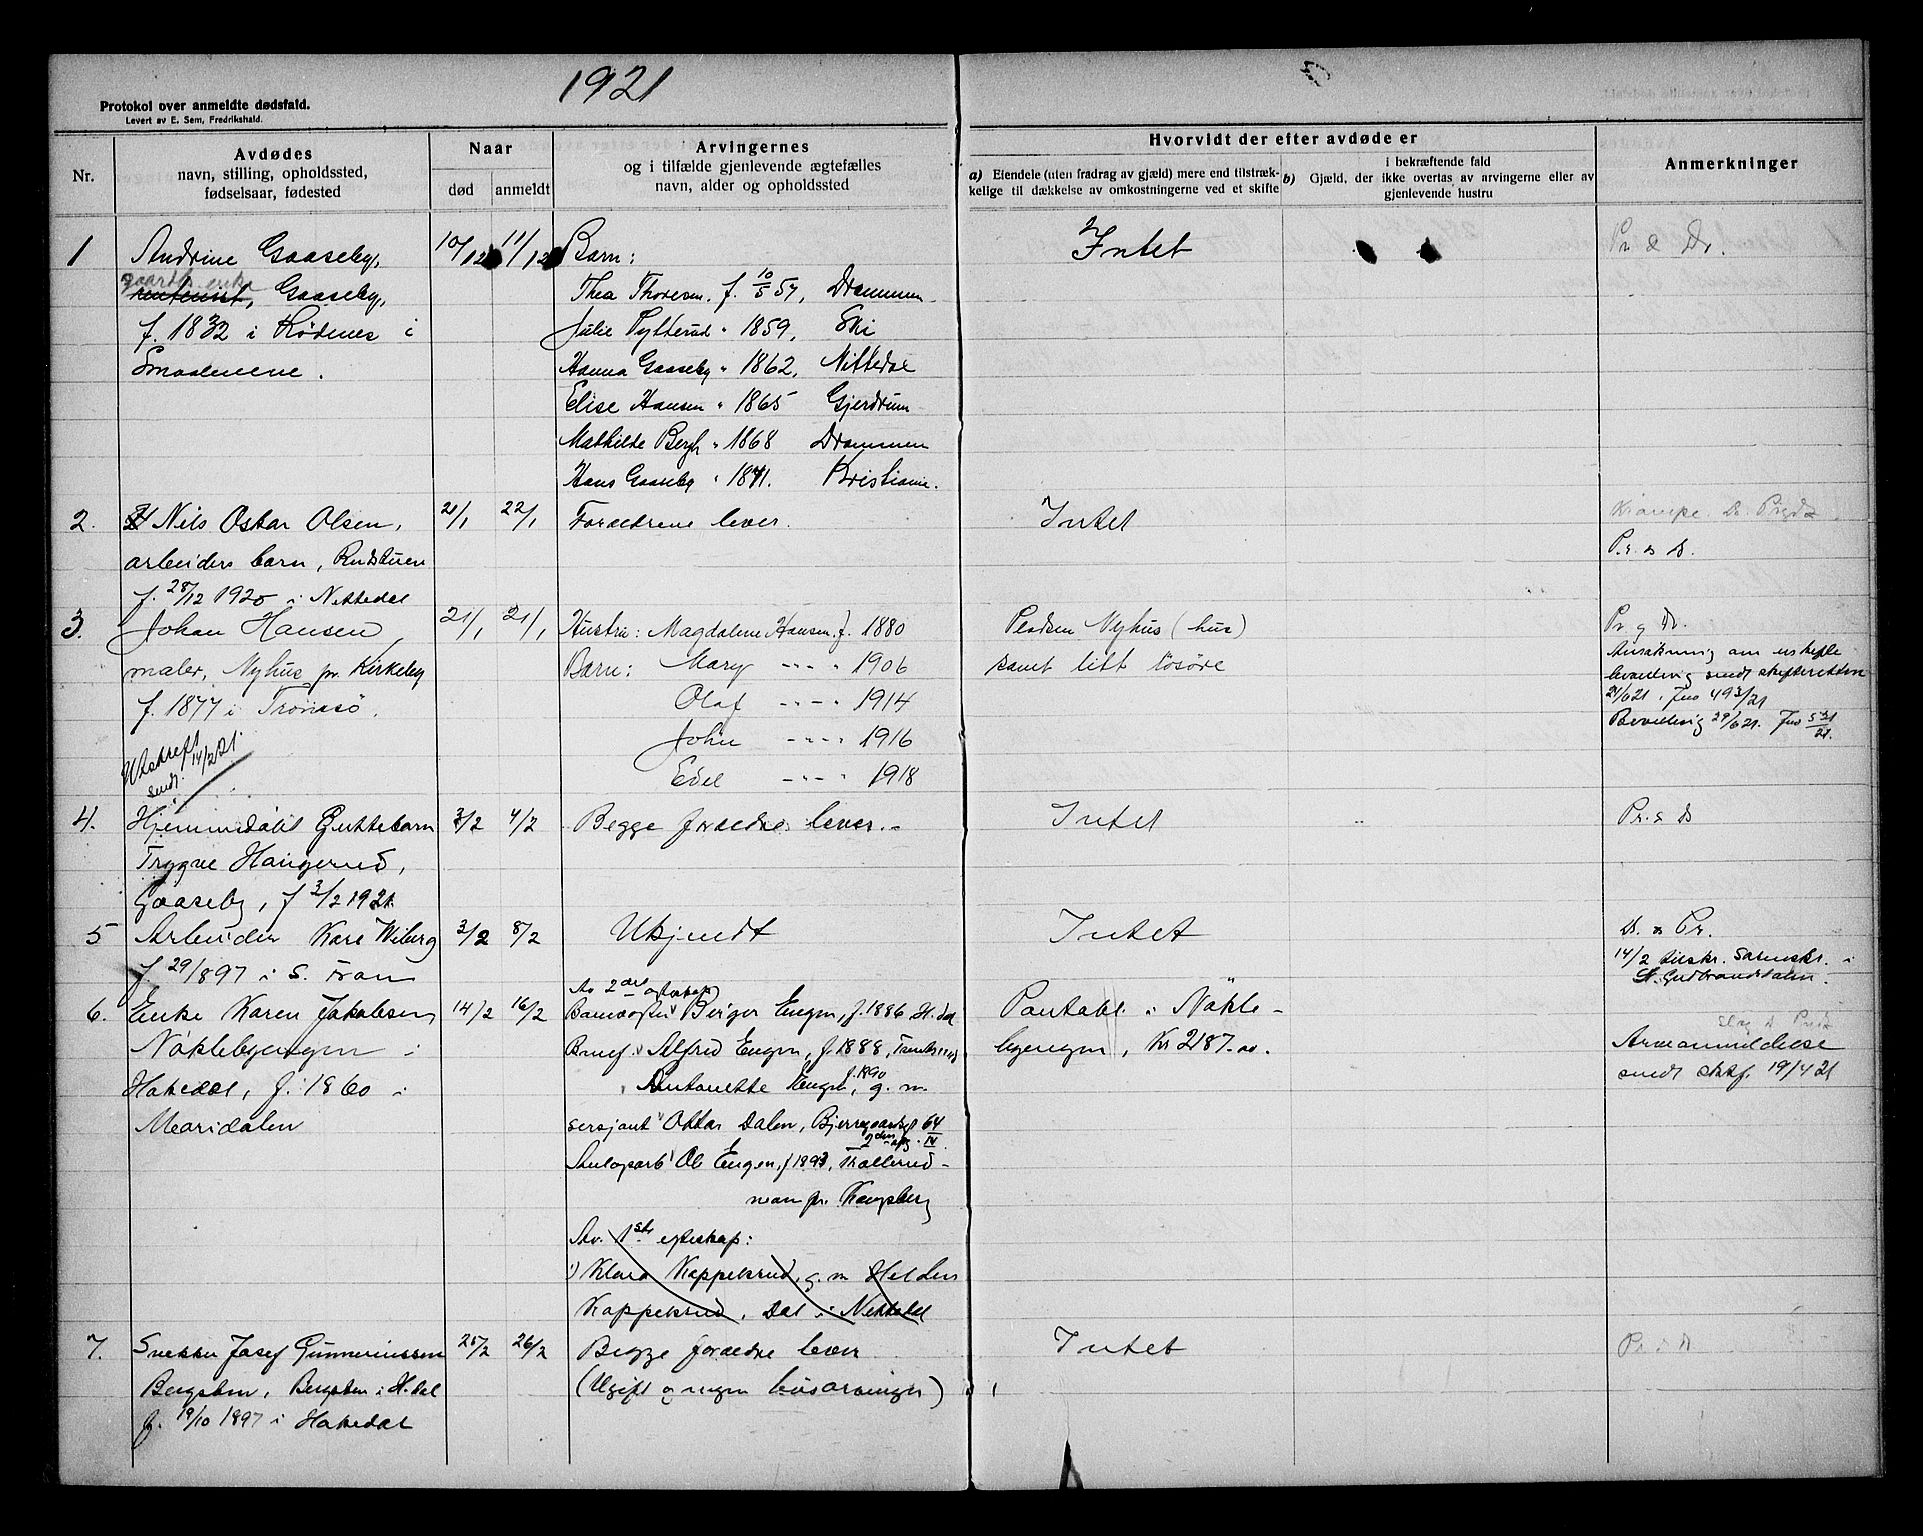 1921
Protokol over anmeldte dødsfald.
Levert av E. Sem, Fredrikshald.
Nr.
Avdødes
navn, stilling, opholdssted,
fødselsaar, fødested
Naar
død
anmeldt
Arvingernes
og i tilfælde gjenlevende ægtefælles
navn, alder og opholdssted
Hvorvidt der efter avdøde er
a) Eiendele (uten fradrag av gjæld) mere end tilstræk-
kelige til dækkelse av omkostningerne ved et skifte
i bekræftende fald
b) Gjæld, der ikke overtas av arvingerne eller av
gjenlevende hustru
Anmerkninger
1
Andrine Gaaseby,
gaardb. enke
rentenist, Gaaseby,
f. 1832 i Rødenes i
Smaalenene.
10/12
11/12
Barn:
Thea Thoresen. f. 10/5 57, Drammen.
Julie Tytterud " 1859, Ski
Hanna Gaaseby " 1862, Nittedal
Elise Hansen " 1865 Gjerdrum
Mathilde Bergh " 1868 Drammen
Hans Gaaseby " 1871. Kristiania.
Intet
Pr & Dr.
2.
Nils Oskar Olsen,
arbeiders barn, Rudstuen
f. 28/12 1920 i Nittedal
21/1
22/1
Forældrene lever.
Intet
Pr. & D.
3.
Johan Hansen,
maler, Nyhus pr. Kirkeby
f. 1877 i Tromsø.
Utskrift
sendt 14/2 21.
21/1
21/1
Hustru: Magdalene Hansen f. 1880
Barn: Mary " " " 1906
Olaf " " " 1914
John " " " 1916
Edel " " " 1918
Pladsen Nyhus (hus)
samt litt løsøre
Pr. og Dr.
Ansøkning om uskifte
bevilling sendt skifteretten
Jno 493/21
4.
Hjemmedøbt Guttebarn
Trygve Haugerud,
Gaaseby, f 3/2 1921.
3/2
4/2
Begge forældre lever.-
Intet
"
Pr. & D
5
Arbeider Kare Wiberg
f. 29/8 97 i S. Fron
3/2
8/2
Ukjendt
Intet
D. & Pr.
14/2 tilskr. Sorenskr. i
S. Gudbrandsdalen.
6.
Enke Karen Jakobsen
Nøklebyengen i
Hakedal, f. 1860 i
Maridalen
14/2
16/2
Av 2det egteskap
Birger Engen, f. 1886 H.dal
Alfred Engen, f. 1888,
Antonette Engen, f. 1890 g. m.
sersjant Ottar Dalen, Bjerregaardsgt 64/IV
2den opg.
Ole Engen, f 1893, Trollerud-
moen pr. Kongsberg
Av. 1ste egteskap:
1) Klara Kappelsrud, g. m Halden
Kappelsrud, Dal i Nittedal
Panteobl. i Nøkle-
byengen, Kr 2187.00.
Arveanmeldelse
sendt skf. 19/4 21
7.
Snekker Josef Gunneriussen
Bergsten, Bergsten i H.dal
f. 19/10 1897 i Hakedal
25/2
26/2
Begge forældre lever
(Ugift og ingen livsarvinger)
Intet
Pr & D